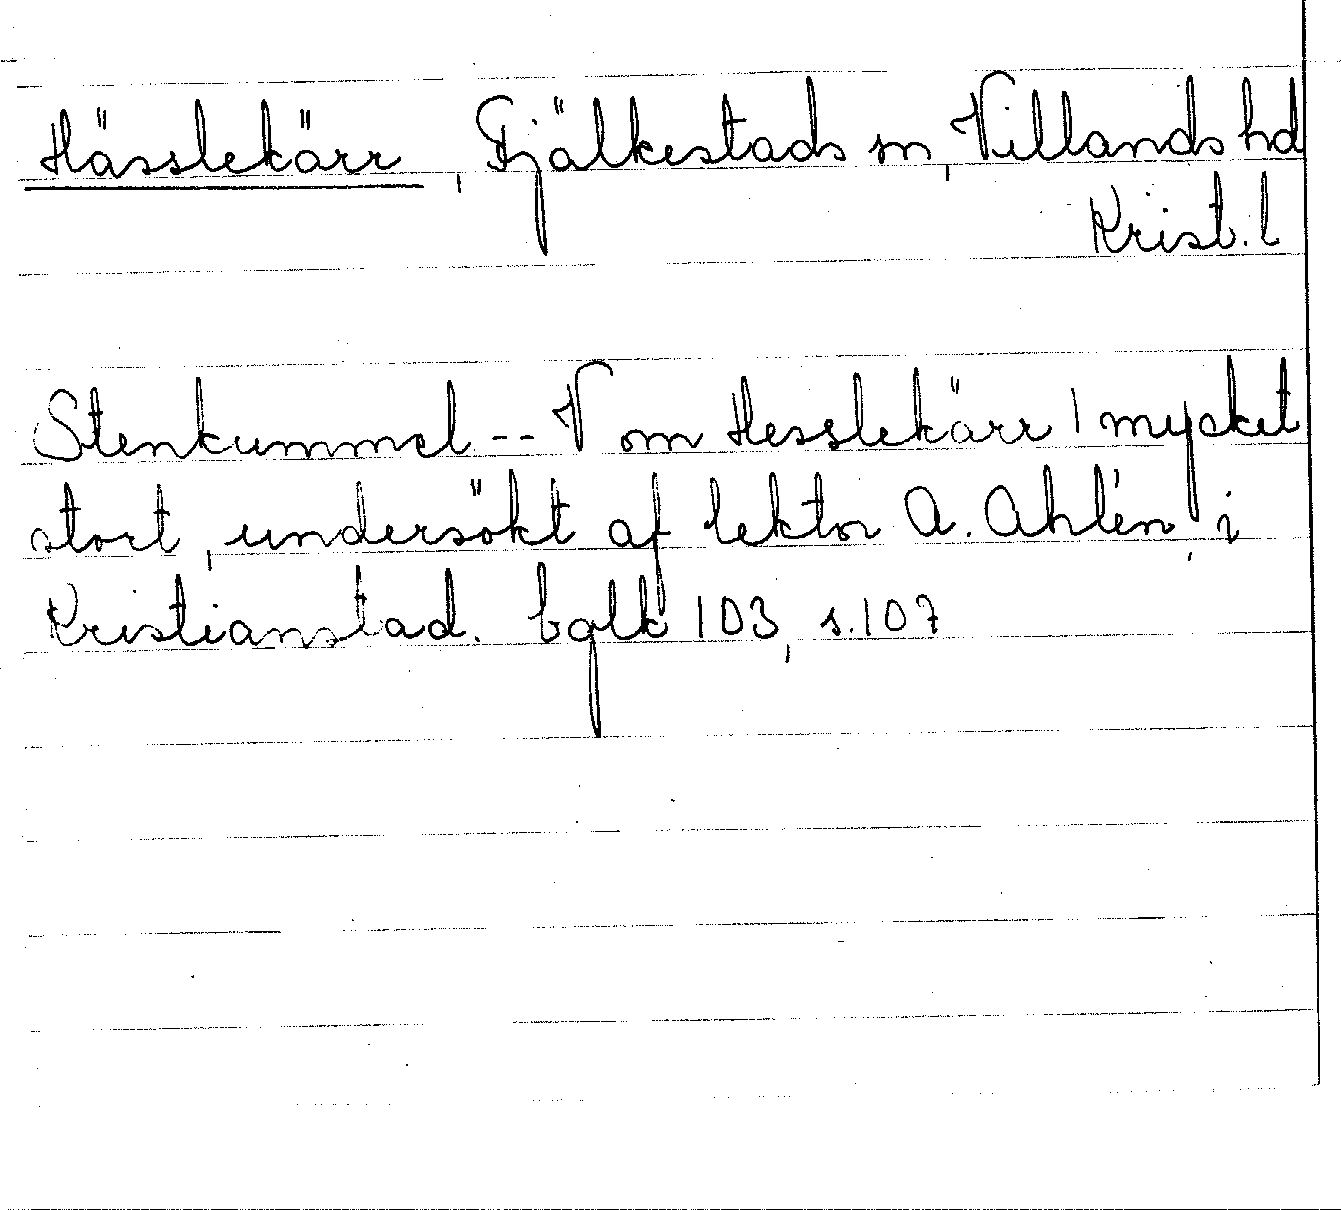 Hässlekärr, Fjälkestads sn, Villands hd
Krist. l
Stenkummel -- V om Hesslekärr 1 mycket
stort, undersökt af lektor A. Ahlén, i
Kristianstad. bglk 103, s. 107